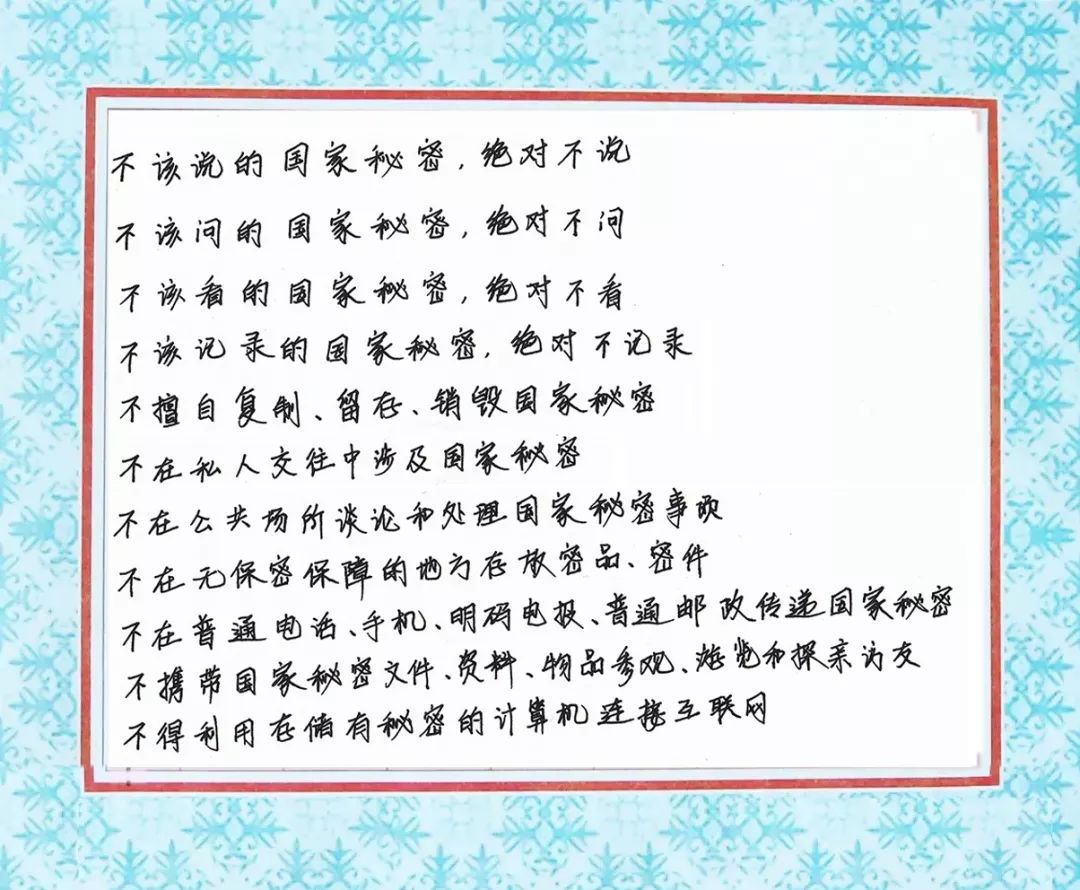 不该说的国家秘密,绝对不说
不该问的国家秘密,绝对不问
不该看的国家秘密,绝对不看
不该记录的国家秘密,绝对不记录
不擅自复制、留存、销毁国家秘密
不在私人交往中涉及国家秘密
不在公共场所谈论和处理国家秘密事项
不在无保密保障的地方存放密品、密件
不在普通电话、手机、明码电报、普通邮政传递国家秘密
不携带国家秘密文件、资料、物品参观、游览和探亲访友
不得利用存储有秘密的计算机连接互联网